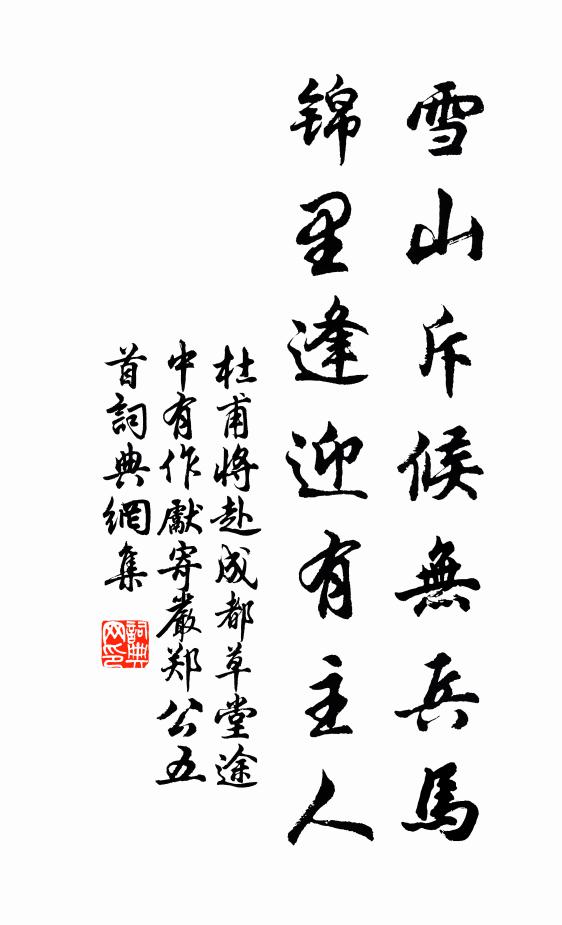 雪山斥候無兵馬
锦里逢迎有主人
杜甫将赴成都草堂途
中有作獻寄嚴郑公五
首詞典網集
詞典
网印